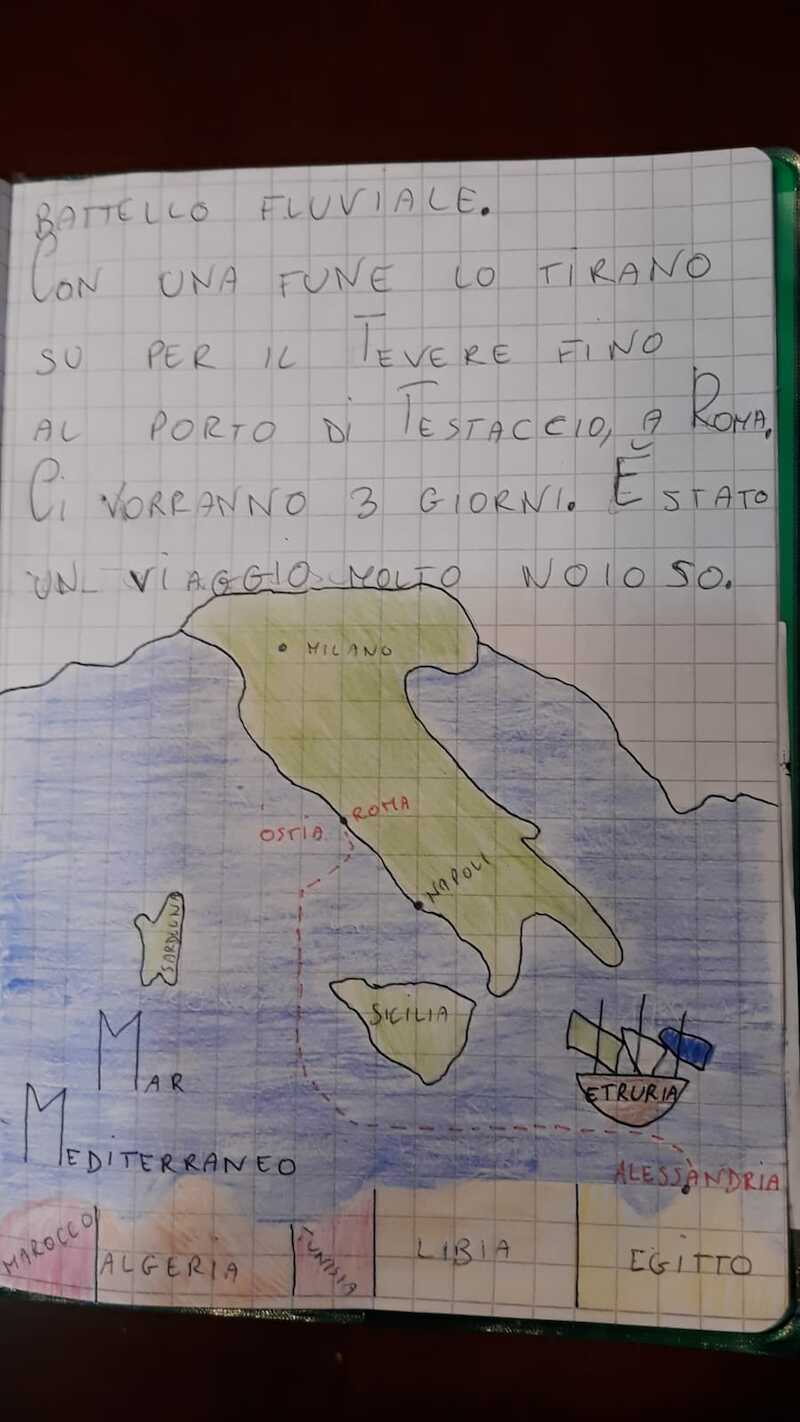 BATTELLO FLUVIALE.
CON UNA FUNE LO TIRANO
SU PER IL TEVERE FINO
AL PORTO DI TESTACCIO, A ROMA.
CI VORRANNO 3 GIORNI. È STATO
UN VIAGGIO MOLTO NOIOSO.
MILANO
ROMA
OSTIA
NAPOLI
SARDEGNA
SICILIA
MAR
MEDITERRANEO
ETRURIA
ALESSANDRIA
MAROCCO
ALGERIA
TUNISIA
LIBIA
EGITTO